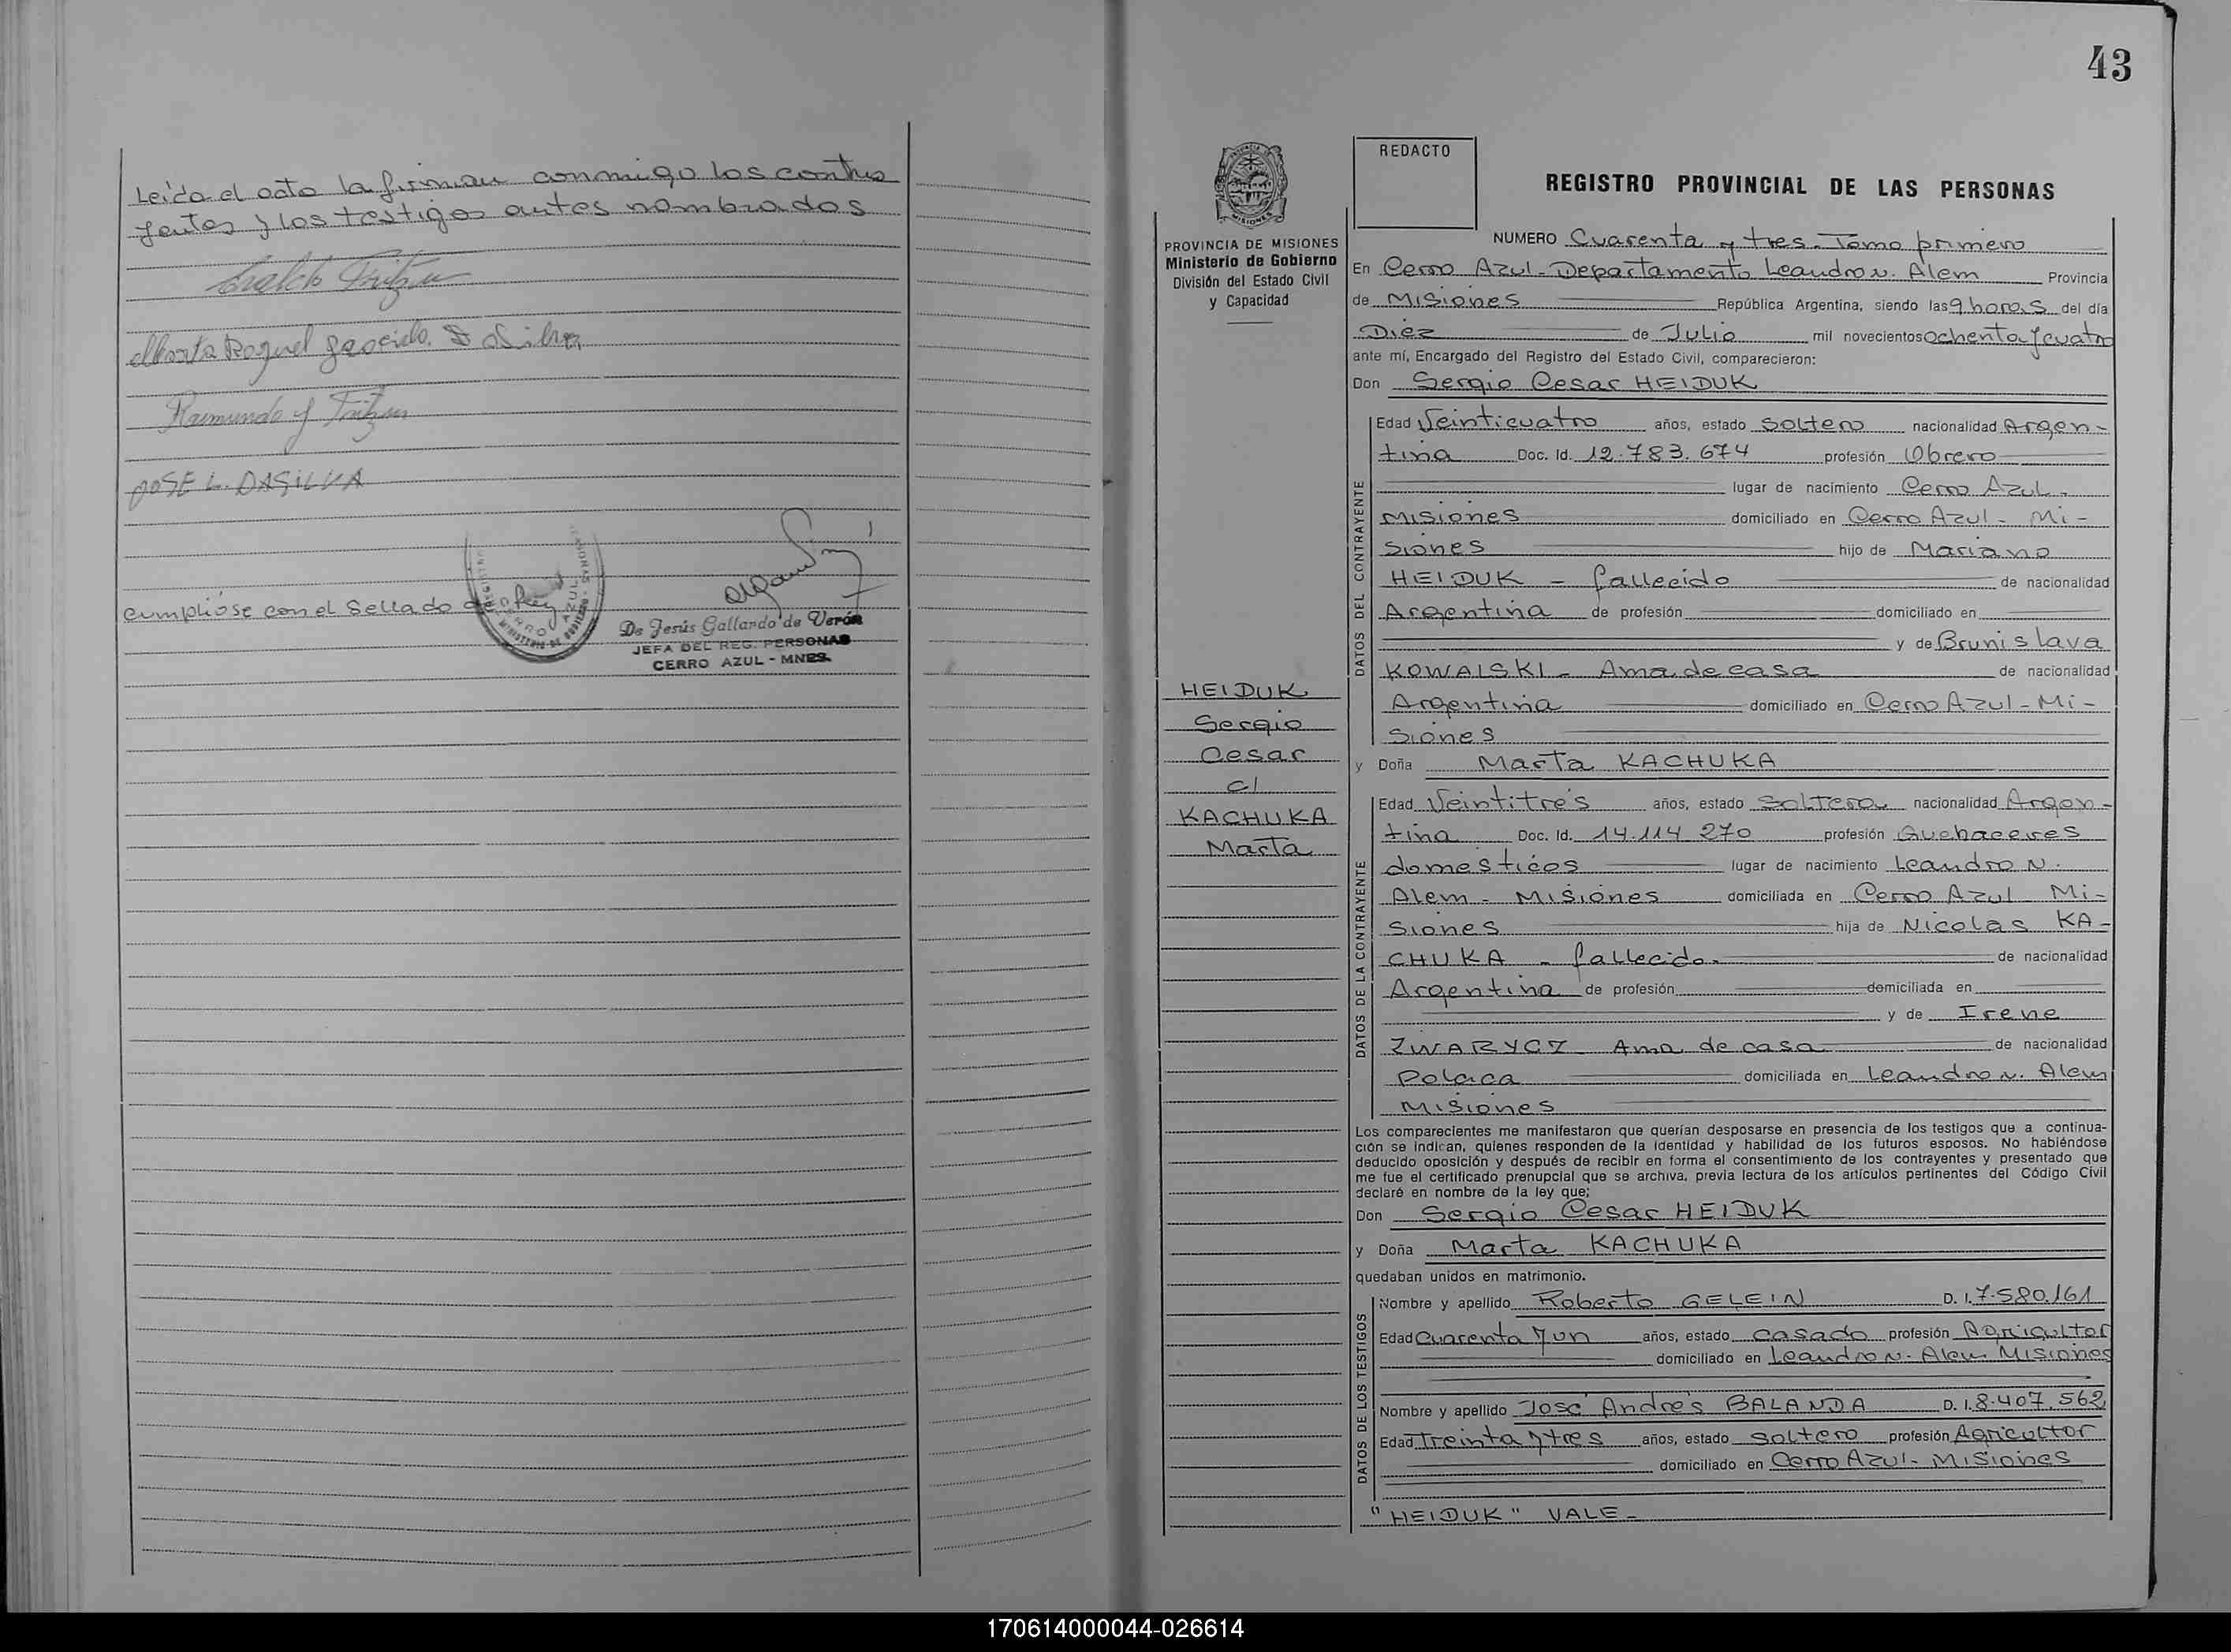 Leída el acta la firman conmigo los contra
yentes y los testigos antes nombrados
Raimundo J Fritzen
JOSE L. DASILVA
Cumplióse con el Sellado de Ley
De Jesús Gallardo de Verón
JEFA DEL REG. PERSONAS
CERRO AZUL - MNES.
43
REDACTO
REGISTRO PROVINCIAL DE LAS PERSONAS
PROVINCIA DE MISIONES
Ministerio de Gobierno
División del Estado Civil
y Capacidad
HEIDUK
Sergio
Cesar
c/
KACHUKA
Marta
NUMERO Cuarenta y tres. Tomo primero
En Cerro Azul - Departamento Leandro N. Alem Provincia
de Misiones República Argentina, siendo las 9 horas del día
Diez de Julio mil novecientos ochenta y cuatro
ante mí, Encargado del Registro del Estado Civil, comparecieron:
Don Sergio Cesar HEIDUK
DATOS DEL CONTRAYENTE
Edad Veinticuatro años, estado Soltero nacionalidad Argen-
tina Doc. Id. 12.783.674 profesión Obrero
lugar de nacimiento Cerro Azul -
Misiones domiciliado en Cerro Azul - Mi-
siones hijo de Mariano
HEIDUK - fallecido de nacionalidad
Argentina de profesión domiciliado en
y de Brunislava
KOWALSKI - Ama de casa de nacionalidad
Argentina domiciliado en Cerro Azul - Mi-
siones
y Doña Marta KACHUKA
DATOS DE LA CONTRAYENTE
Edad Veintitrés años, estado Soltera nacionalidad Argen-
tina Doc. Id. 14.114.270 profesión Quehaceres
domesticos lugar de nacimiento Leandro N.
Alem - Misiones domiciliada en Cerro Azul Mi-
siones hija de Nicolas KA-
CHUKA - fallecido - de nacionalidad
Argentina de profesión domiciliada en
y de Irene
ZWARYCZ - Ama de casa de nacionalidad
Polaca domiciliada en Leandro N. Alem
Misiones
Los comparecientes me manifestaron que querían desposarse en presencia de los testigos que a continua-
ción se indican, quienes responden de la identidad y habilidad de los futuros esposos. No habiéndose
deducido oposición y después de recibir en forma el consentimiento de los contrayentes y presentado que
me fue el certificado prenupcial que se archiva, previa lectura de los artículos pertinentes del Código Civil
declaré en nombre de la ley que;
Don Sergio Cesar HEIDUK
y Doña Marta KACHUKA
quedaban unidos en matrimonio.
DATOS DE LOS TESTIGOS
Nombre y apellido Roberto GELEIN D. I. 7.580.161
Edad Cuarenta y un años, estado casado profesión Agricultor
domiciliado en Leandro N. Alem Misiones
Nombre y apellido José Andrés BALANDA D. I. 8.407.562
Edad Treinta y tres años, estado soltero profesión Agricultor
domiciliado en Cerro Azul - Misiones
"HEIDUK" VALE -
170614000044-026614